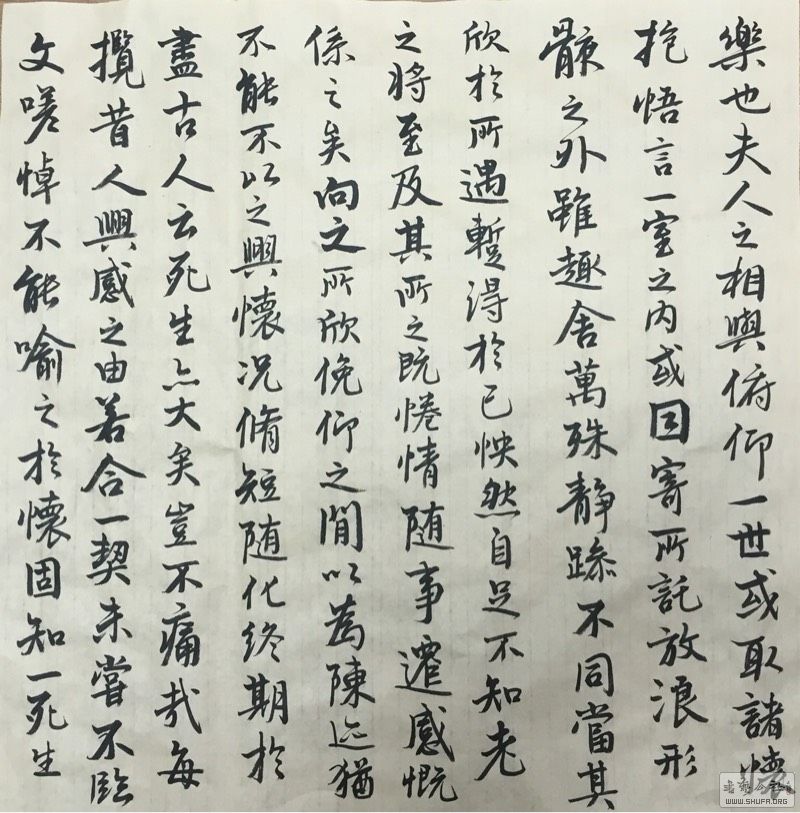 樂也夫人之相與俯仰一世或取諸懷
抱悟言一室之内或因寄所託放浪形
骸之外雖趣舍萬殊静躁不同當其
欣於所遇暫得於己怏然自足不知老
之将至及其所之既惓情随事遷感慨
係之矣向之所欣俛仰之閒以為陳迹猶
不能不以之興懷况脩短随化終期於
盡古人云死生亦大矣豈不痛哉每
攬昔人興感之由若合一契未嘗不臨
文嗟悼不能喻之於懷固知一死生
WWW.SHUFA.ORG